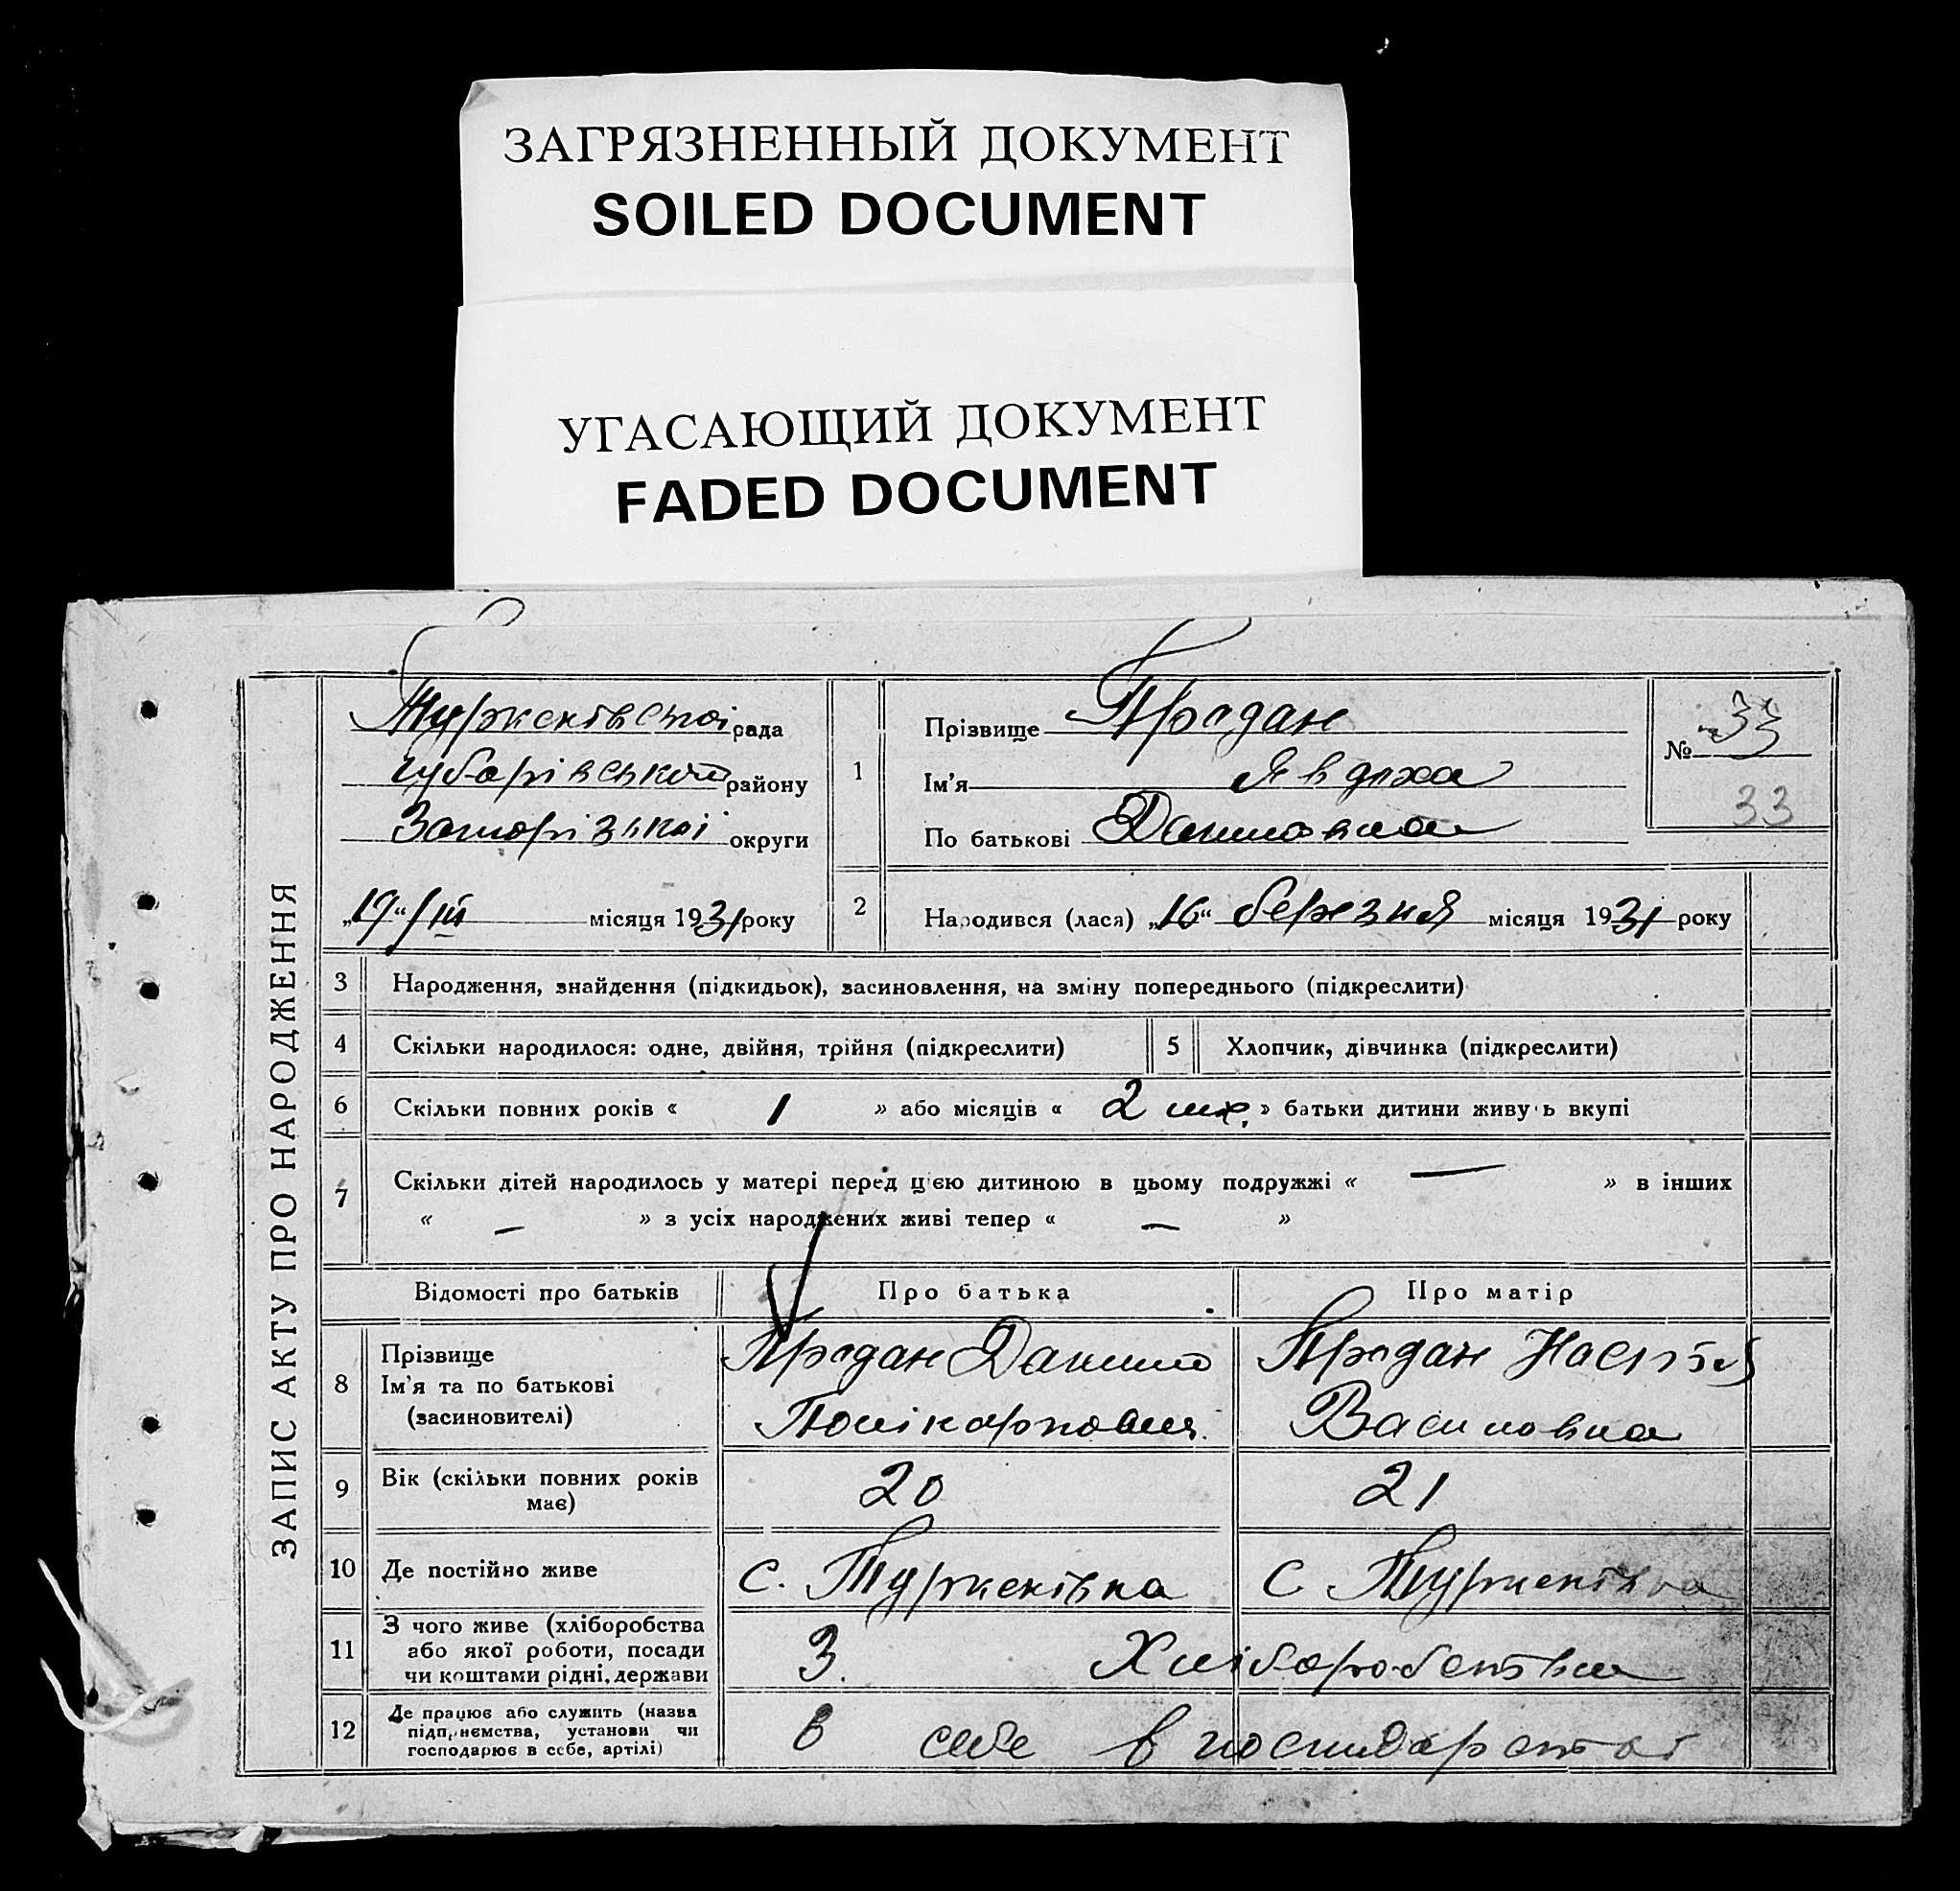 ЗАГРЯЗНЕННЫЙ ДОКУМЕНТ
SOILED DOCUMENT
УГАСАЮЩИЙ ДОКУМЕНТ
FADED DOCUMENT
ЗАПИС АКТУ ПРО НАРОДЖЕННЯ
рада
Чубарівський району
Запорізької округи
„19“/III місяця 1931 року
1
Прізвище Продан
Ім'я Явдоха
По батькові Даниловна
№ 33
33
2 Народився (лася) „16“ березня місяця 1931 року
3 Народження, знайдення (підкидьок), засиновлення, на зміну попереднього (підкреслити)
4 Скільки народилося: одне, двійня, трійня (підкреслити) 5 Хлопчик, дівчинка (підкреслити)
6 Скільки повних років « 1 » або місяців « 2 » батьки дитини живуть вкупі
7 Скільки дітей народилось у матері перед цією дитиною в цьому подружжі « — » в інших
« — » з усіх народжених живі тепер « — »
Відомості про батьків Про батька Про матір
8 Прізвище
Ім'я та по батькові
(засиновителі)
Продан Данило
Полікарпович
Продан Настя
Василовна
9 Вік (скільки повних років
має)
20 21
10 Де постійно живе с. Туркенівка с Туркенівка
11 З чого живе (хліборобства
або якої роботи, посади
чи коштами рідні, держави
З. Хліборобства
12 Де працює або служить (назва
підприємства, установи чи
господарює в себе, артілі)
в себе в господарстві